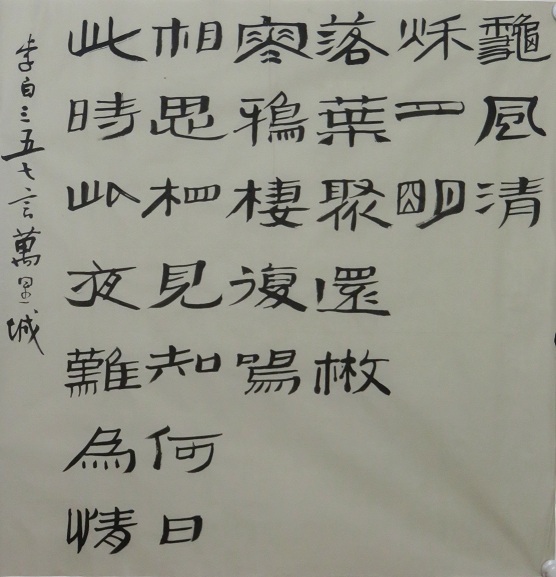 龝風清
秌月朙
落葉聚還㪔
寒鴉棲復驚
相思相見知何日
此時此夜難為情
李白三五七言萬里城